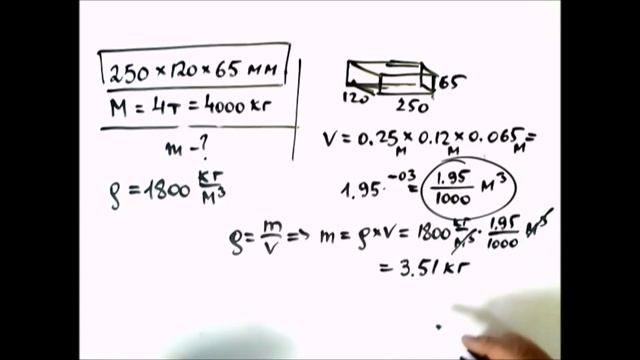 250×120×65 мм
M = 4т = 4000 кг
m - ?
ρ = 1800 кг/м³
65
120
250
V = 0.25 м × 0.12 м × 0.065 м =
1.95 · ⁻⁰³ = 1.95/1000 м³
ρ = m/V => m = ρ×V = 1800 кг/м³ · 1.95/1000 м³
= 3.51 кг